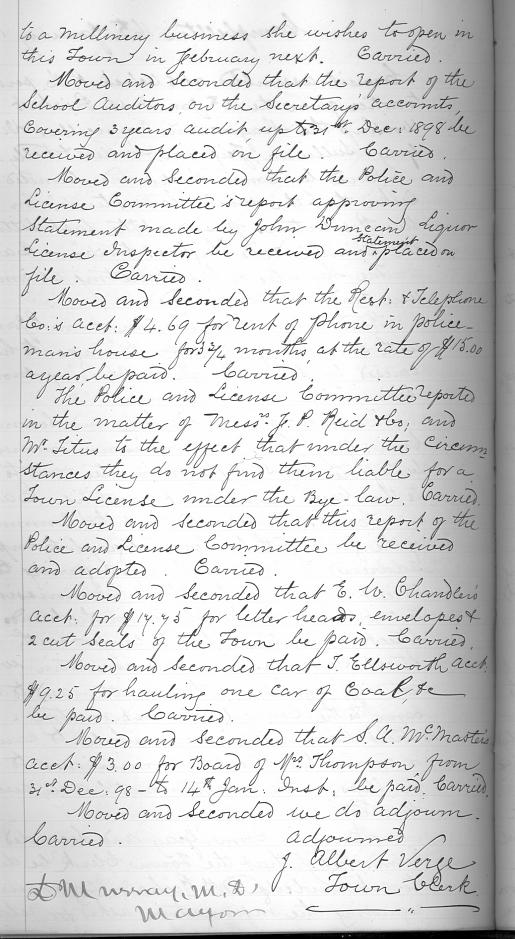 to a millinery business she wishes to open in
this Town in February next. Carried.
Moved and Seconded that the report of the
School Auditors, on the Secretary's accounts,
Covering 3 years audit, up to 31st. Dec: 1898 be
received and placed on file. Carried.
Moved and Seconded that the Police and
License Committee's report approving
Statement made by John Duncan Liquor
License Inspector be received and statement placed on
file. Carried.
Moved and Seconded that the Rest: & Telephone
Co:'s acct: $4.69 for rent of phone in police-
man's house for 3 3/4 months, at the rate of $15.00
a year, be paid. Carried.
The Police and License Committee reported
in the matter of Messrs J. P. Reid & Co; and
Mr. Titus to the effect that under the Circum
stances they do not find them liable for a
Town License under the Bye-law. Carried.
Moved and Seconded that this report of the
Police and License Committee be received
and adopted. Carried.
Moved and Seconded that E. W. Chandler's
acct: for $17.75 for letter heads, envelopes &
2 cut Seals of the Town be paid. Carried.
Moved and Seconded that T. Ellsworth acct.
$9.25 for hauling one car of Coal, &c
be paid. Carried.
Moved and Seconded that S. A. McMasters
acct: $3.00 for Board of Mrs. Thompson from
31st Dec: 98 - to 14th Jan: Inst, be paid. Carried.
Moved and Seconded we do adjourn.
Carried. adjourned
J. Albert Verge
Town Clerk
D Murray, M. D.
Mayor